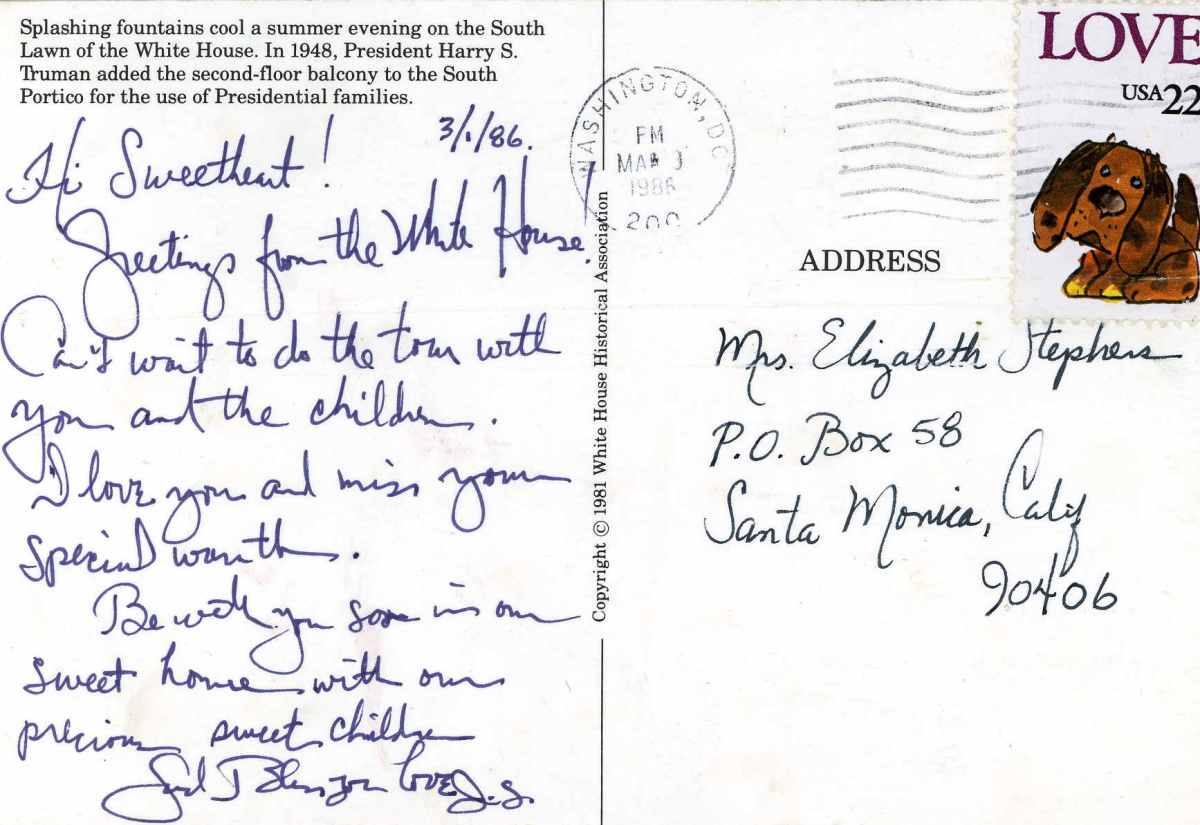 Splashing fountains cool a summer evening on the South
Lawn of the White House. In 1948, President Harry S.
Truman added the second-floor balcony to the South
Portico for the use of Presidential families.
3/1/86.
Hi Sweetheart!
Greetings from the White House!
Can't wait to do the tour with
you and the children.
I love you and miss your
special warmth.
Be with you soon in our
sweet home with our
precious sweet children
God Bless you love J.S.
Copyright © 1981 White House Historical Association
WASHINGTON, DC
PM
MAR
1986
200
LOVE
USA 22
ADDRESS
Mrs. Elizabeth Stephens
P.O. Box 58
Santa Monica, Calif
90406